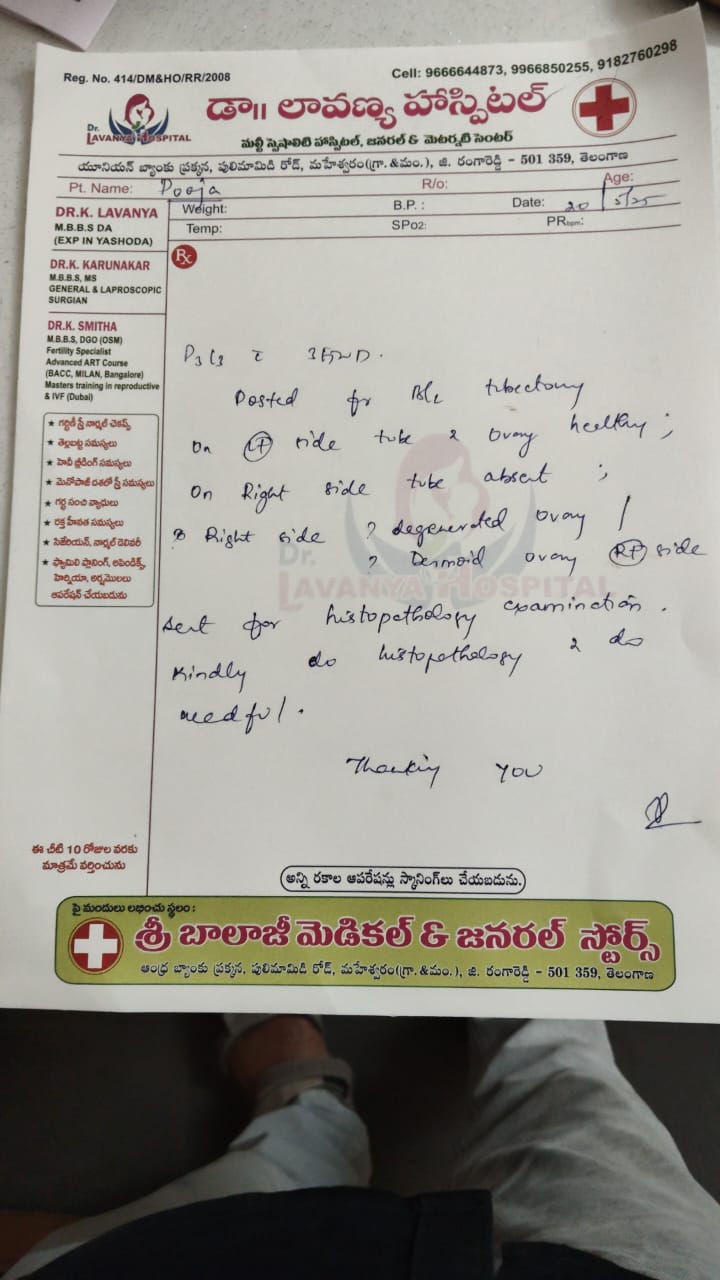 Reg. No. 414/DM&HO/RR/2008
Cell: 9666644873, 9966850255, 9182760298
Dr.
LAVANYA HOSPITAL
డా॥ లావణ్య హాస్పిటల్
మల్టీ స్పెషాలిటి హాస్పిటల్, జనరల్ & మెటర్నటి సెంటర్
యూనియన్ బ్యాంకు ప్రక్కన, పులిమామిడి రోడ్, మహేశ్వరం(గ్రా.&మం.), జి. రంగారెడ్డి - 501 359, తెలంగాణ
Pt. Name: Pooja R/o: Age:
Weight: B.P. : Date: 20/5/25
Temp: SPo2: PRbpm:
DR.K. LAVANYA
M.B.B.S DA
(EXP IN YASHODA)
DR.K. KARUNAKAR
M.B.B.S, MS
GENERAL & LAPROSCOPIC
SURGIAN
DR.K. SMITHA
M.B.B.S, DGO (OSM)
Fertility Specialist
Advanced ART Course
(BACC, MILAN, Bangalore)
Masters training in reproductive
& IVF (Dubai)
★ గర్భిణీ స్త్రీ నార్మల్ చెకప్స్
★ తెల్లబట్ట సమస్యలు
★ హెవీ బ్లీడింగ్ సమస్యలు
★ మెనోపాజ్ దశలో స్త్రీ సమస్యలు
★ గర్భ సంచి వ్యాధులు
★ రక్త హీనత సమస్యలు
★ సిజేరియన్, నార్మల్ డెలివరీ
★ ఫ్యామిలి ప్లానింగ్, అపెండిక్స్,
హెర్నియా, అర్షమొలలు
ఆపరేషన్ చేయబడును
Rx
P3L3 c 3FTND.
Posted for B/L tubectomy
On LT side tube & ovary healthy ;
On Right side tube absent ;
Right side ? degenerated ovary /
? Dermoid ovary RT side
Dr.
LAVANYA HOSPITAL
sent for histopathology examination.
Kindly do histopathology & do
needful.
Thanking you
ఈ చీటి 10 రోజుల వరకు
మాత్రమే వర్తించును
అన్ని రకాల ఆపరేషన్లు స్కానింగ్‌లు చేయబడును.
పై మందులు లభించు స్థలం :
శ్రీ బాలాజీ మెడికల్ & జనరల్ స్టోర్స్
ఆంధ్ర బ్యాంకు ప్రక్కన, పులిమామిడి రోడ్, మహేశ్వరం(గ్రా.&మం.), జి. రంగారెడ్డి - 501 359, తెలంగాణ